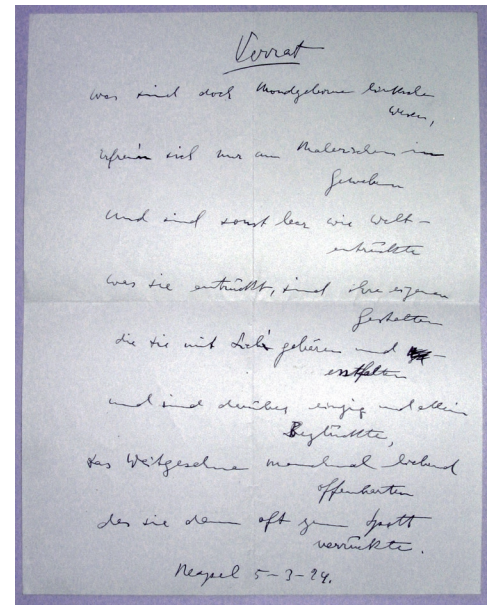 Verrat
was sind doch Mondgeborne für
Wesen,
erfreun sich nur am Malerischen im
Gewebten
und sind sonst leer wie Welt-
entrückte
was sie entrückt, sind ihre eigenen
Gestalten
die sie mit Licht gebären und
entfalten
und sind darüber einzig und allein
Beglückte,
das Weitgesehne manchmal liebend
offenbarten
des sie dann oft zum Spott
verrückte.
Neapel 5-3-24.